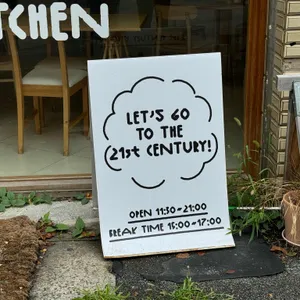 TCHEN
LET'S GO
TO THE
21st CENTURY!
OPEN 11:30-21:00
BREAK TIME 15:00-17:00